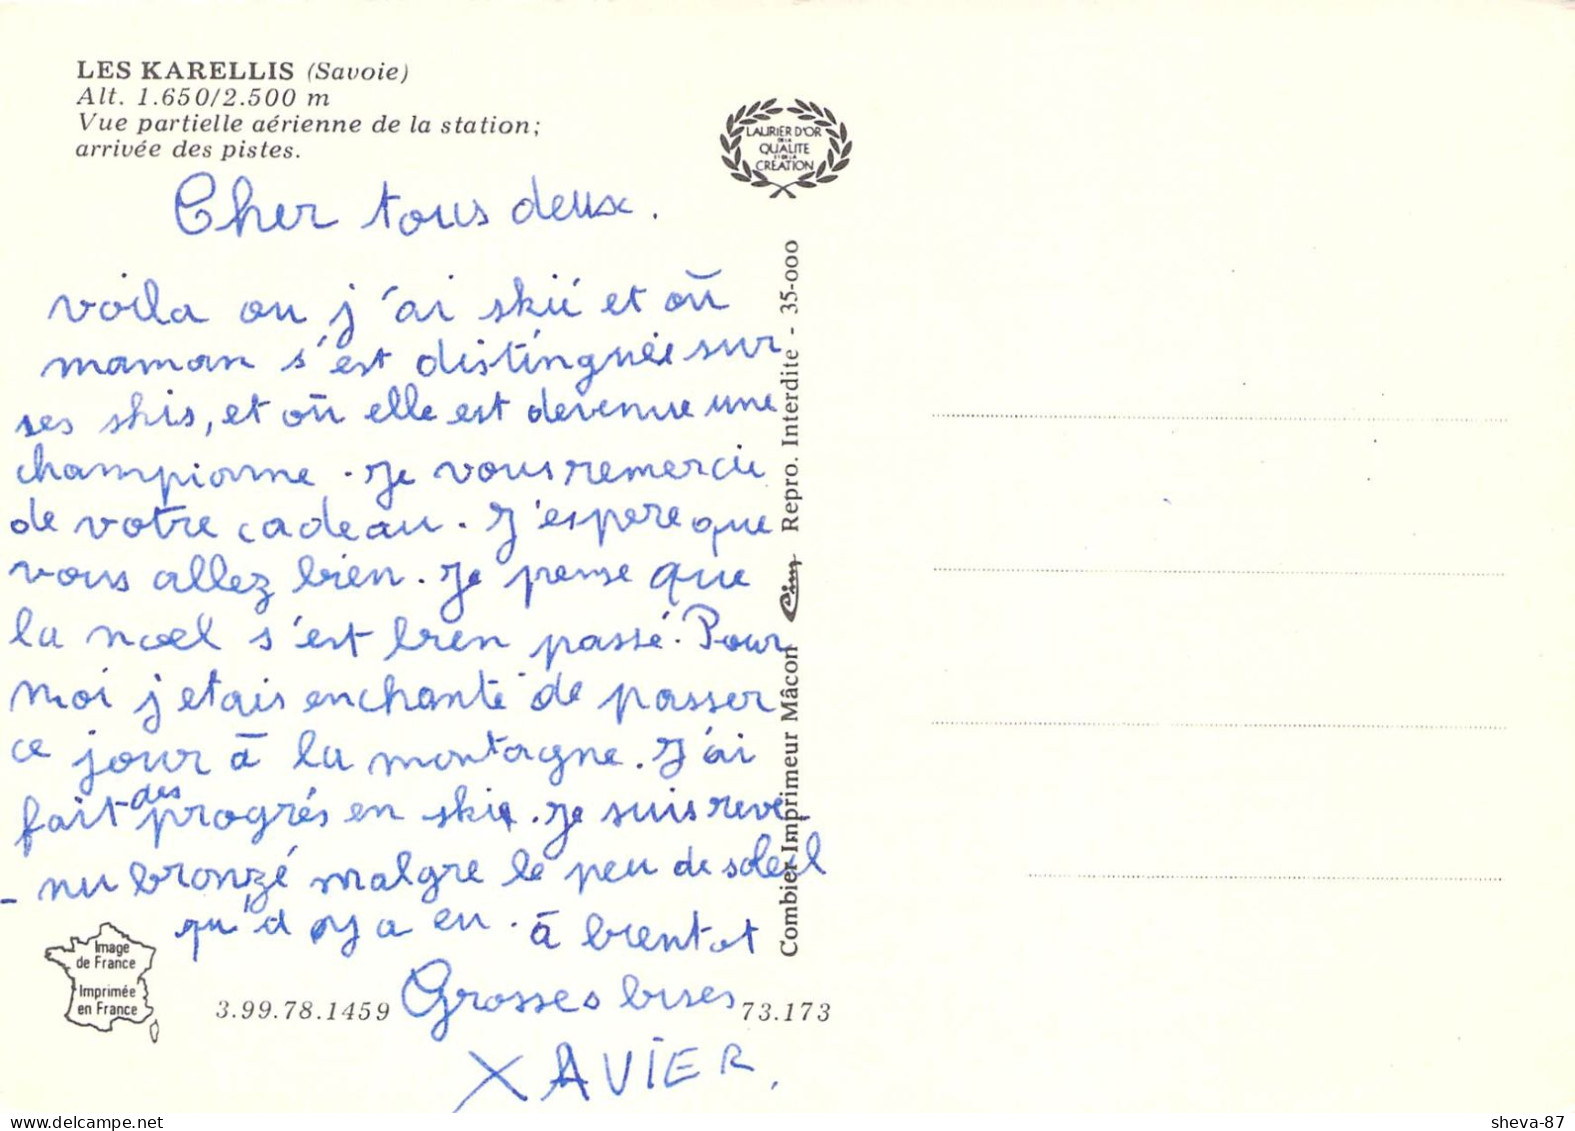 LES KARELLIS (Savoie)
Alt. 1.650/2.500 m
Vue partielle aérienne de la station;
arrivée des pistes.
LAURIER D'OR
DE LA
QUALITE
ET DE LA
CREATION
Cher tous deux.
voila ou j'ai skié et où
maman s'est distinguée sur
ses skis, et où elle est devenue une
championne. Je vous remercie
de votre cadeau. J'espere que
vous allez bien. Je pense que
la noël s'est bien passé. Pour
moi j etais enchanté de passer
ce jour à la montagne. J'ai
fait des progrés en ski. Je suis reve
- nu bronzé malgre le peu de soleil
qu'il y a en. à bientot
Grosses bises
XAVIER,
Image
de France
Imprimée
en France
3.99.78.1459
73.173
Combier Imprimeur Mâcon Cim Repro. Interdite - 35-000
sheva-87